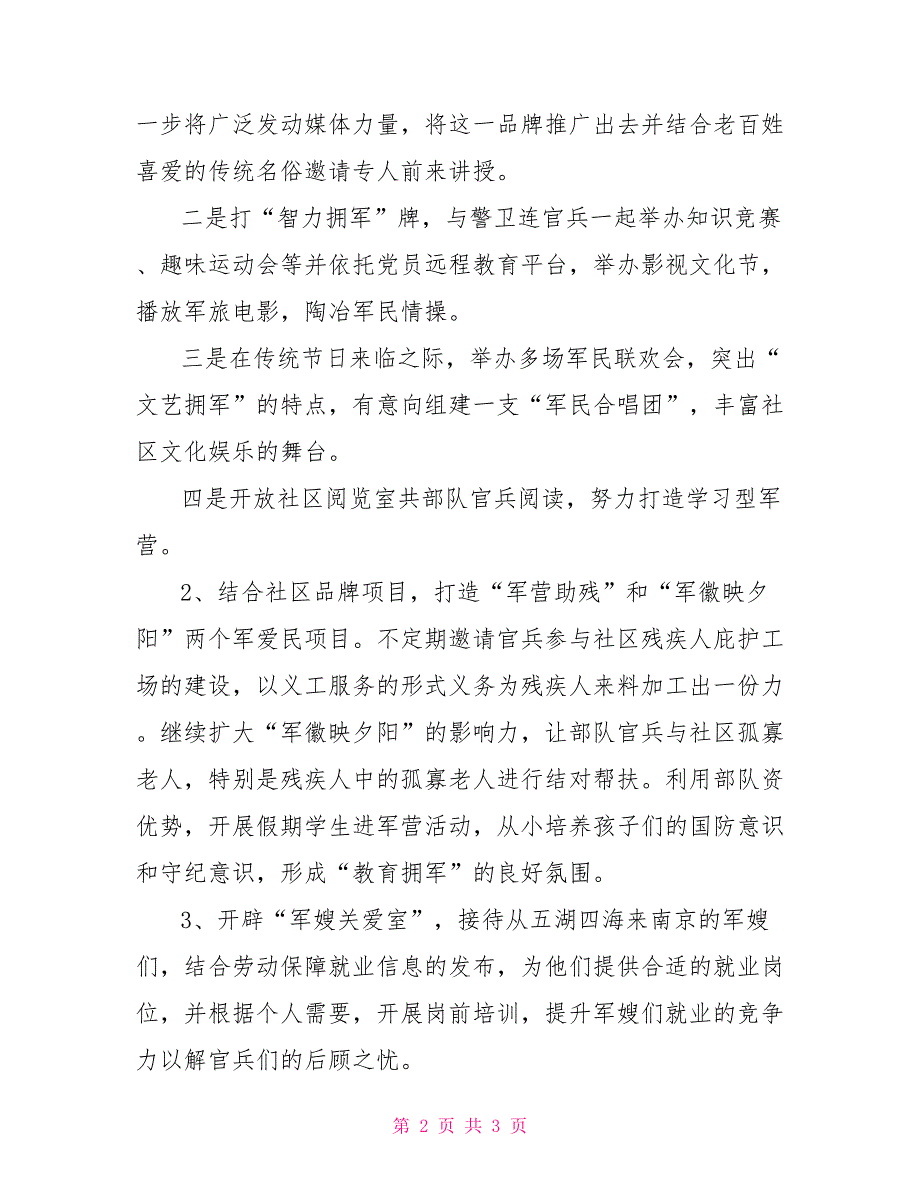 一步将广泛发动媒体力量，将这一品牌推广出去并结合老百姓
喜爱的传统名俗邀请专人前来讲授。
二是打“智力拥军”牌，与警卫连官兵一起举办知识竞赛
、趣味运动会等并依托党员远程教育平台，举办影视文化节，
播放军旅电影，陶冶军民情操。
三是在传统节日来临之际，举办多场军民联欢会，突出“
文艺拥军”的特点，有意向组建一支“军民合唱团”，丰富社
区文化娱乐的舞台。
四是开放社区阅览室共部队官兵阅读，努力打造学习型军
营。
2、结合社区品牌项目，打造“军营助残”和“军徽映夕
阳”两个军爱民项目。不定期邀请官兵参与社区残疾人庇护工
场的建设，以义工服务的形式义务为残疾人来料加工出一份力
。继续扩大“军徽映夕阳”的影响力，让部队官兵与社区孤寡
老人，特别是残疾人中的孤寡老人进行结对帮扶。利用部队资
优势，开展假期学生进军营活动，从小培养孩子们的国防意识
和守纪意识，形成“教育拥军”的良好氛围。
3、开辟“军嫂关爱室”，接待从五湖四海来南京的军嫂
们，结合劳动保障就业信息的发布，为他们提供合适的就业岗
位，并根据个人需要，开展岗前培训，提升军嫂们就业的竞争
力以解官兵们的后顾之忧。
第 2 页 共 3 页